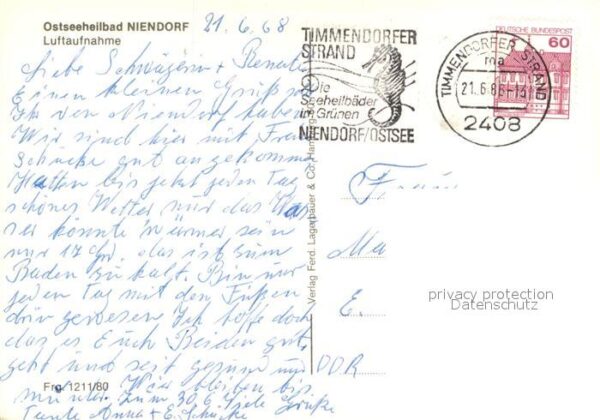 Ostseeheilbad NIENDORF
Luftaufnahme
21.6.68
Liebe Schwägerin + Renate
Einen kleinen Gruß
Ihr von Niendorf haben
Wir sind hier mit Frau
Schücke gut angekomme
Hatten bis jetzt jeden Tag
schönes Wetter nur das Was
ser könnte wärmer sein
nur 17 Gr. das ist zum
Baden zu kalt. Bin nur
jeden Tag mit den Füßen
drin gewesen Ich hoffe doch
das es Euch Beiden gut
geht und seit gesund und
munter. Wir bleiben bis
zum 30.6. Viele Grüße
Tante Anna + E. Schücke
Frg. 1211/80
Verlag Ferd. Lagerbauer & Co. Hamburg
TIMMENDORFER
STRAND
Die
Seeheilbäder
im Grünen
NIENDORF/OSTSEE
TIMMENDORFER STRAND
ma
21.6.88-15
2408
DEUTSCHE BUNDESPOST
60
Frau
Ma
E.
DDR
privacy protection
Datenschutz